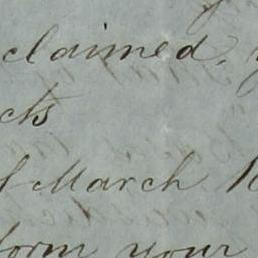 claimed,
cts
of March
form your